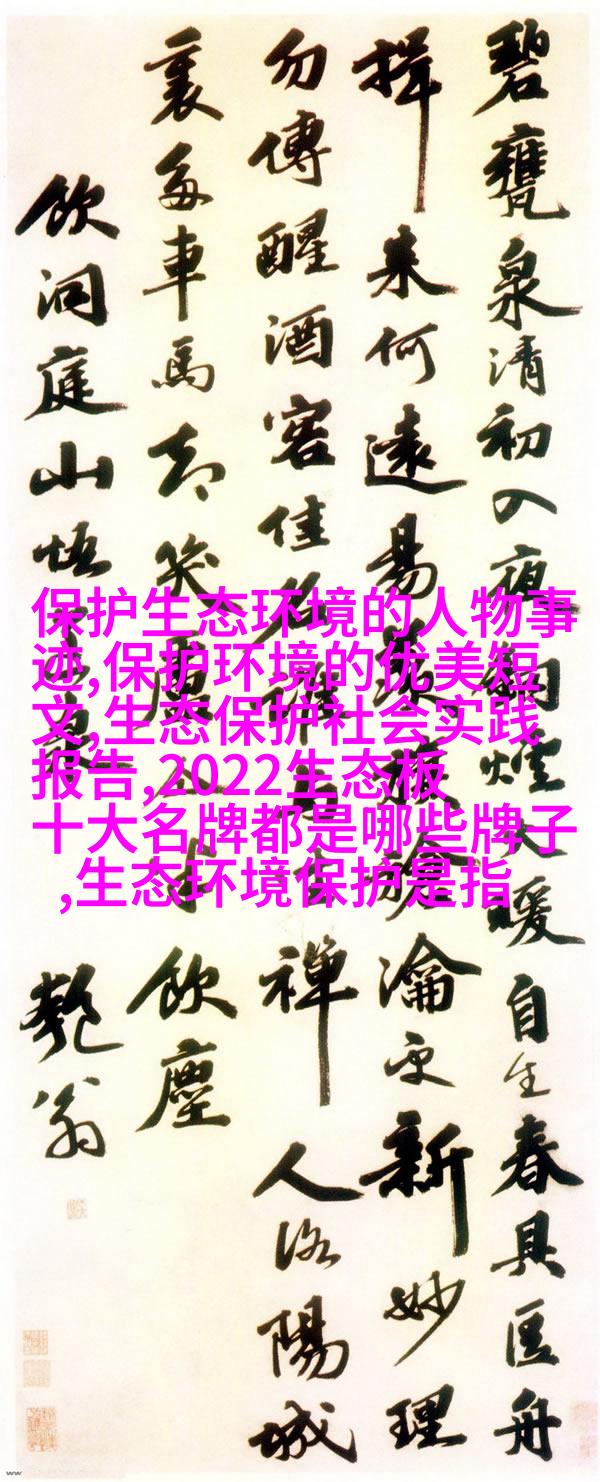 碧甕泉清初入夜銅煙火暖自生春具區舟
楫来何遠易羨旗瀹更新妙理
勿傳醒酒客佳名禅人洛陽城
裏多車馬却笑盧飲塵
飲洞庭山悟
匏翁
保护生态环境的人物事
迹,保护环境的优美短
文,生态保护社会实践
报告,2022生态板
十大名牌都是哪些牌子
,生态环境保护是指